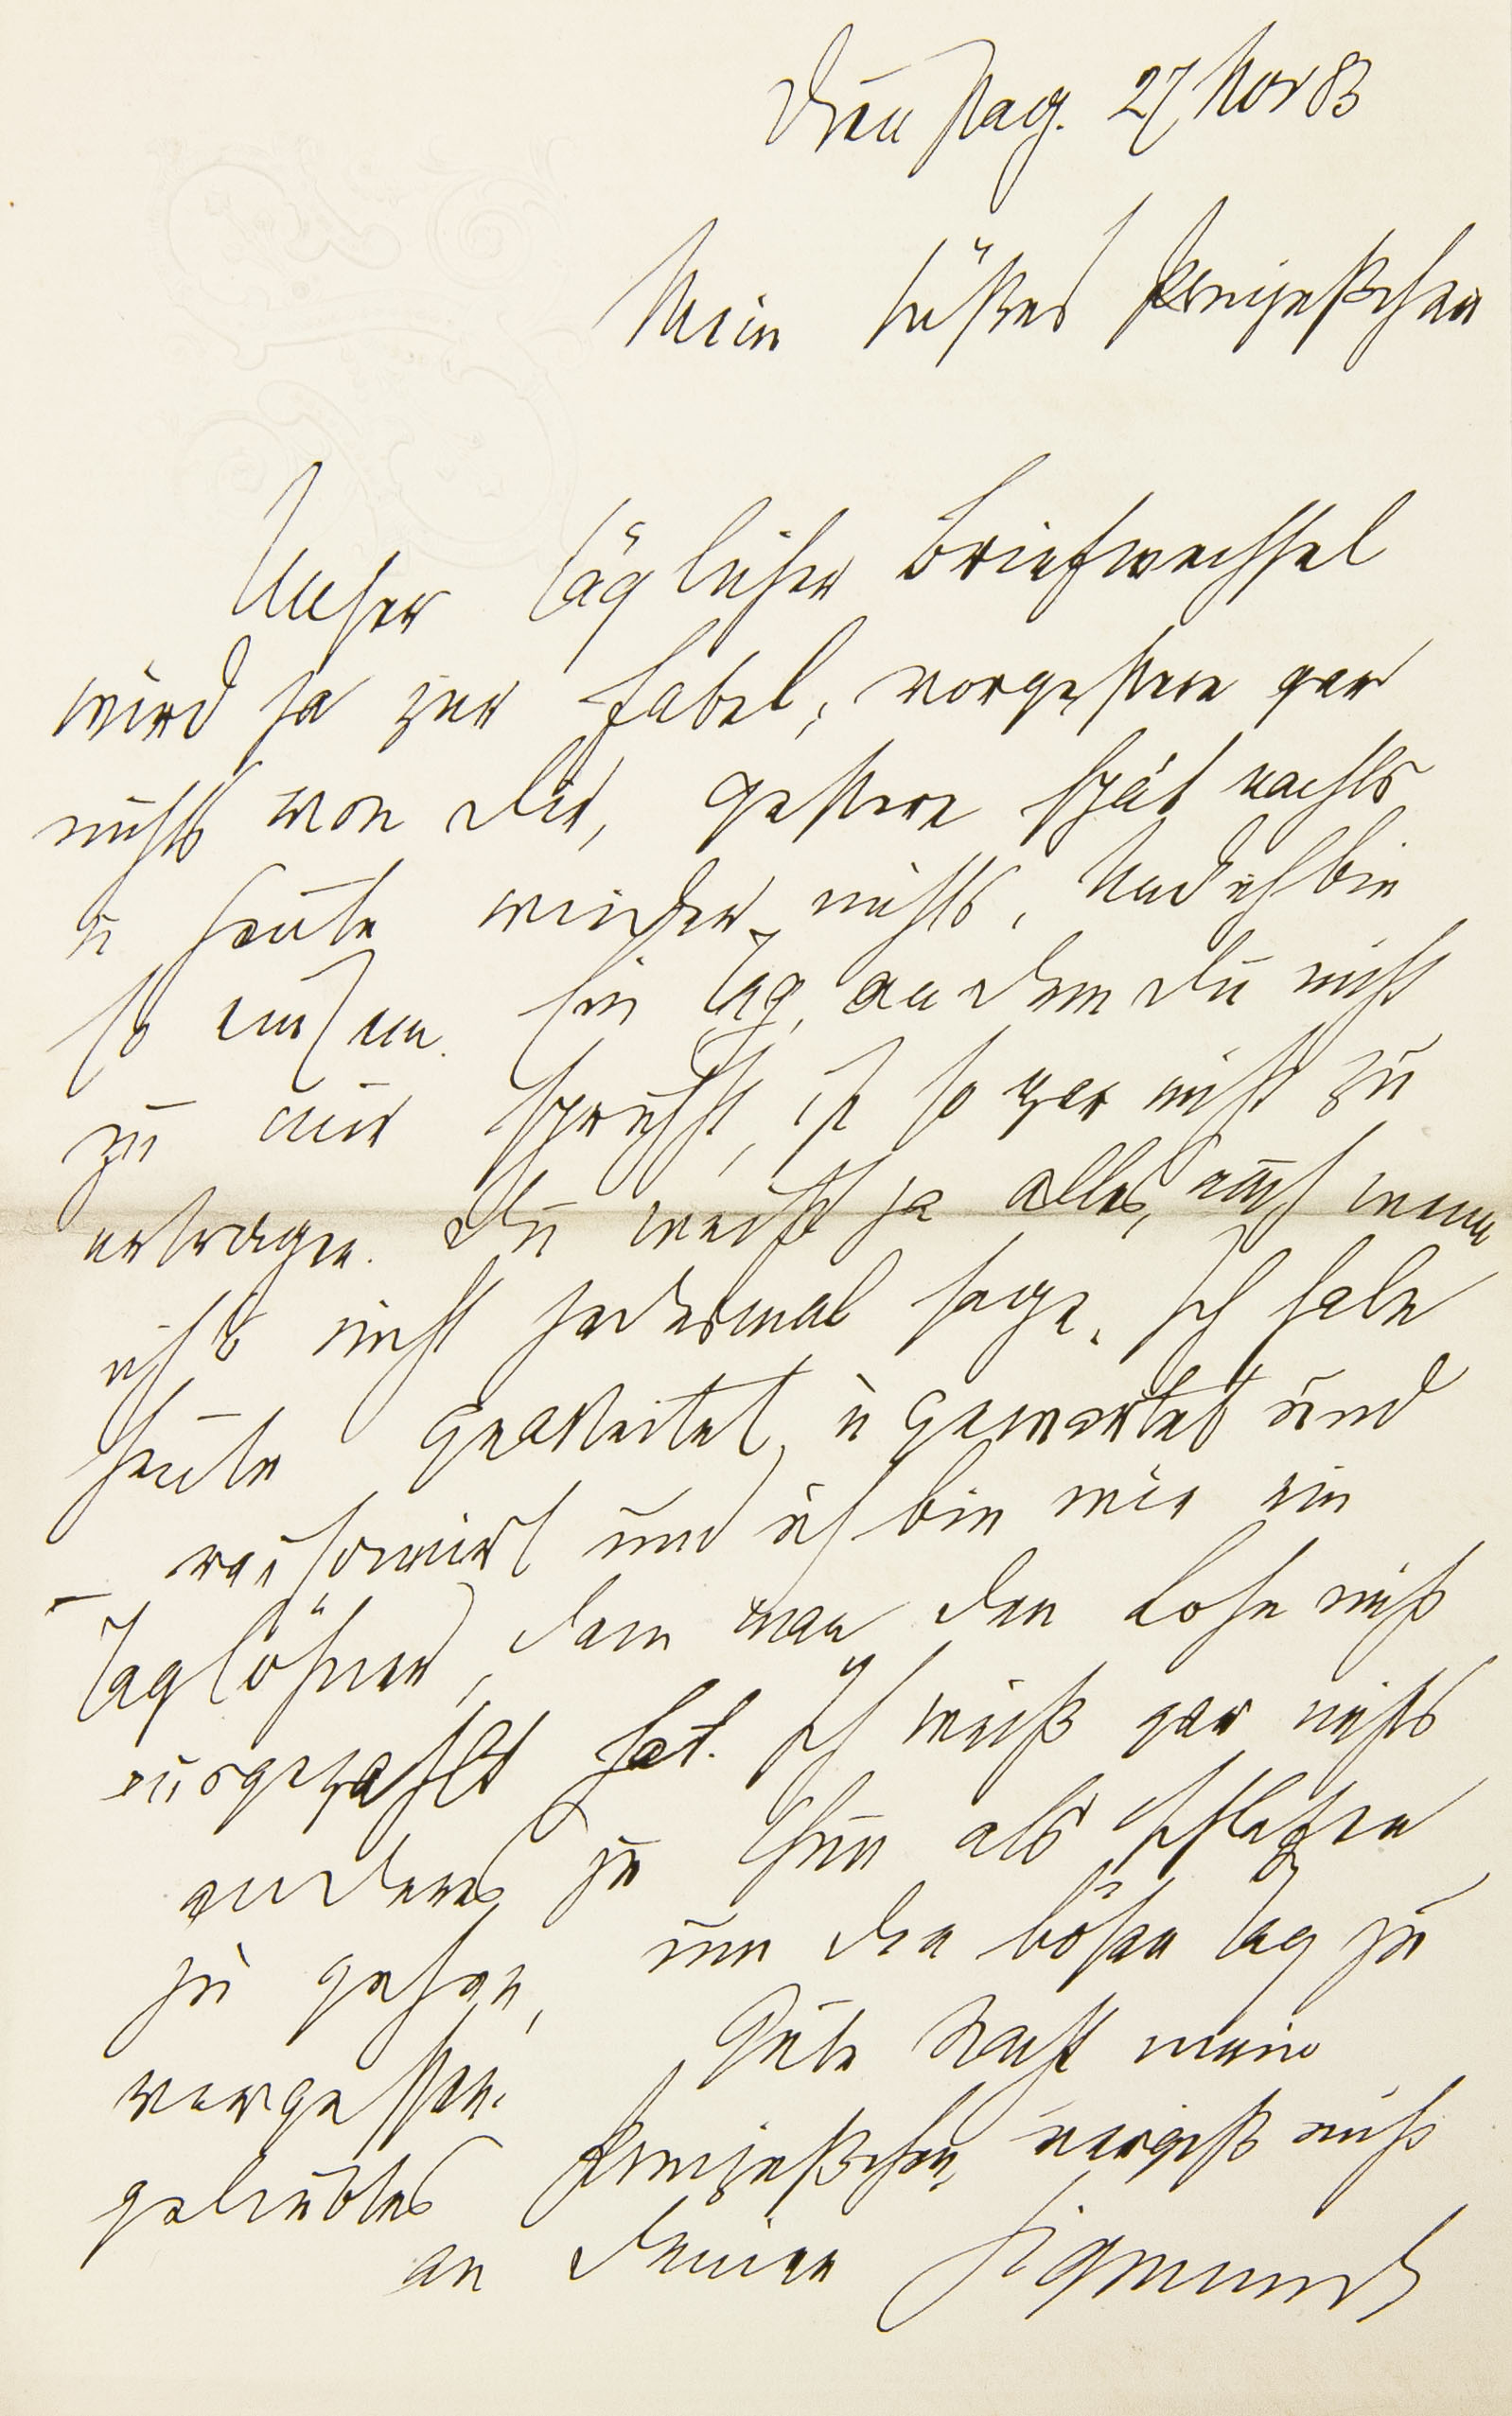 Dienstag. 27 Nov 83
Mein süßes Prinzeßchen
Unser täglicher Briefwechsel
wird ja zur Fabel, vorgestern gar
nichts von Dir, gestern spät nachts
u heute wieder nichts. Und ich bin
so einsam. Ein Tag, an dem Du nicht
zu mir sprichst, ist so gar nicht zu
ertragen. Du weißt ja alles, auch wenn
ich's nicht jedesmal sage. Ich habe
heute gearbeitet, u gewartet und
raisonnirt und ich bin wie ein
Taglöhner, dem man den Lohn nicht
ausgezahlt hat. Ich weiß gar nichts
anderes zu thun als schlafen
zu gehen, um den bösen Tag zu
vergessen. Gute Nacht mein
geliebtes Prinzeßchen, vergiß nicht
an Deinen Sigmund